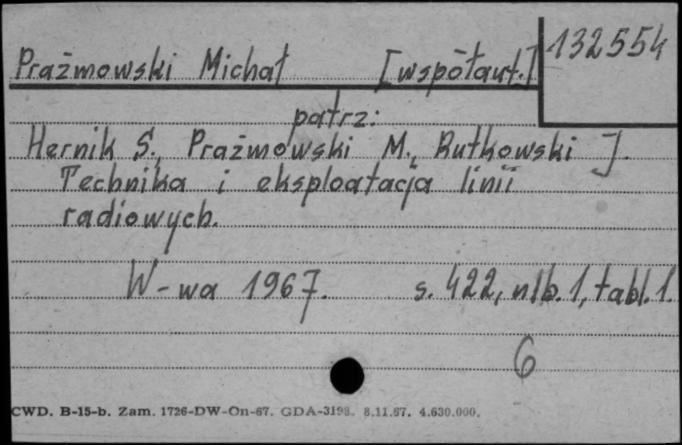 132554
Prażmowski Michał [współaut.]
patrz:
Hernik S., Prażmowski M., Rutkowski J.
Technika i eksploatacja linii
radiowych.
W-wa 1967. s. 422, nlb. 1, tabl. 1.
6
CWD. B-15-b. Zam. 1726-DW-On-67. GDA-3198. 8.11.67. 4.630.000.